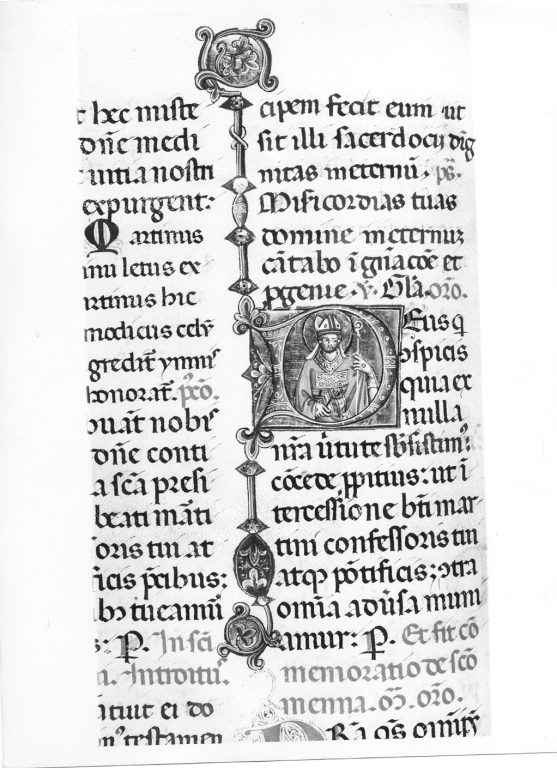 t hec miste
dn̄e medi
untia nostri
expurgent:
Martinus
inu letus ex
artinus hic
modicus celū
greditᷣ ymnis
honorat. p̄cō.
uat nobis
dn̄e conti
a sc̄a presi
beati m̄ati
oris tui at
ficis p̄cibus:
ibꝫ tueamū
s: P. In sc̄i
Introitus.
atuit ei do
m̄ testamen
cipem fecit eum ut
sit illi sacerdocij dig
nitas meternū. ps̄.
Misericordias tuas
domine meternuꝫ
cātabo ī gn̄acōe et
p̱genie. ꝟ. Gl̄a. or̄o.
Deus q
ꝯspicis
quia ex
nulla
nr̄a ūtute sb̄sistimꝰ
cōcede p̱pitius: ut ī
tercessione bt̄i mar
tini confessoris tui
atqꝫ pōtificis: ꝯtra
omīa adūsa mum
amur: P. Et fit cō
memoratio de sc̄o
menna. or̄o.
Rā qs̄ omīps̄